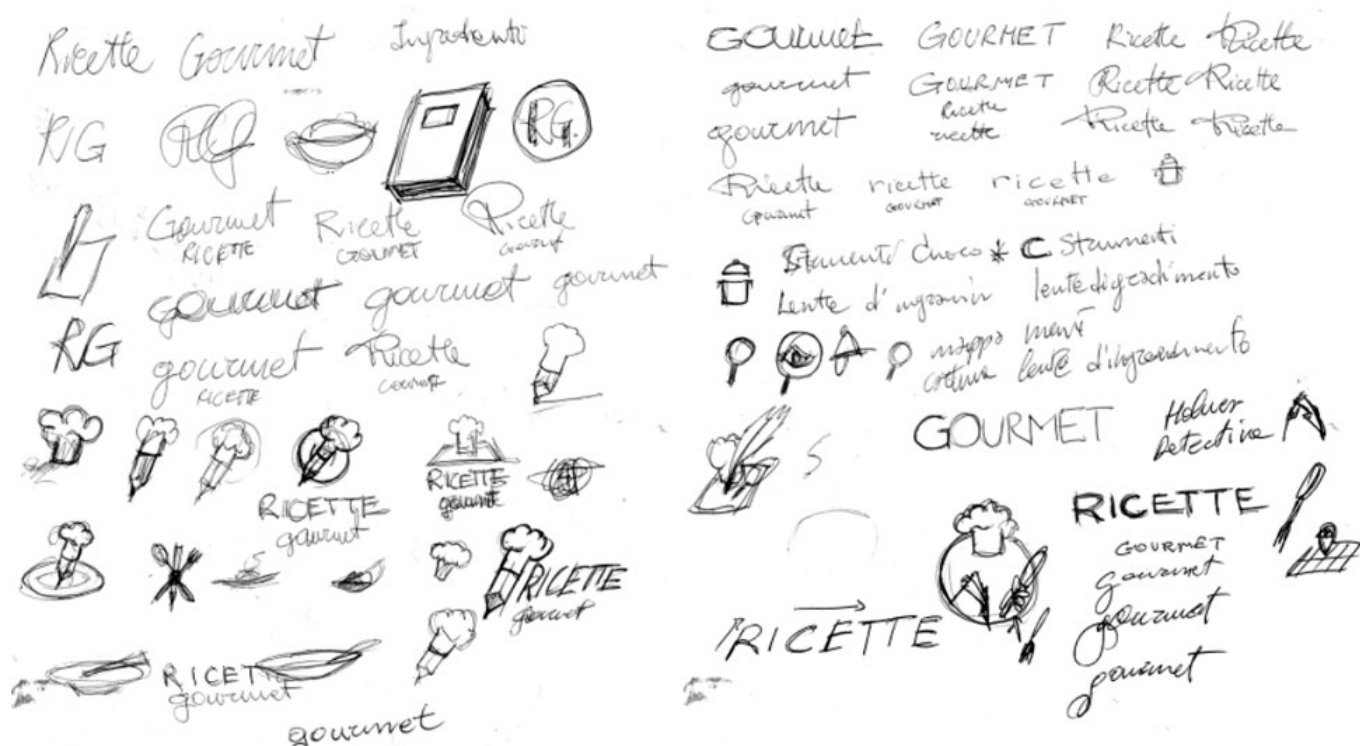 Ricette Gourmet
Ingredienti
RG
RG
RG
Gourmet
RICETTE
Ricette
GOURMET
Ricette
Gourmet
gourmet gourmet gourmet
RG
gourmet
RICETTE
Ricette
GOURMET
RICETTE
gourmet
RICETTE
gourmet
RICETTE
gourmet
RICETTE
gourmet
gourmet
GOURMET GOURMET Ricette Ricette
gourmet GOURMET Ricette Ricette
Ricette
gourmet ricette Ricette Ricette
Ricette ricette ricette
Gourmet GOURMET GOURMET
Strumenti Cuoco * C Strumenti
Lente d'ingran lente di gradimento
mappa menù
lente d'ingradimento
GOURMET
Detective
RICETTE
GOURMET
gourmet
gourmet
gourmet
RICETTE